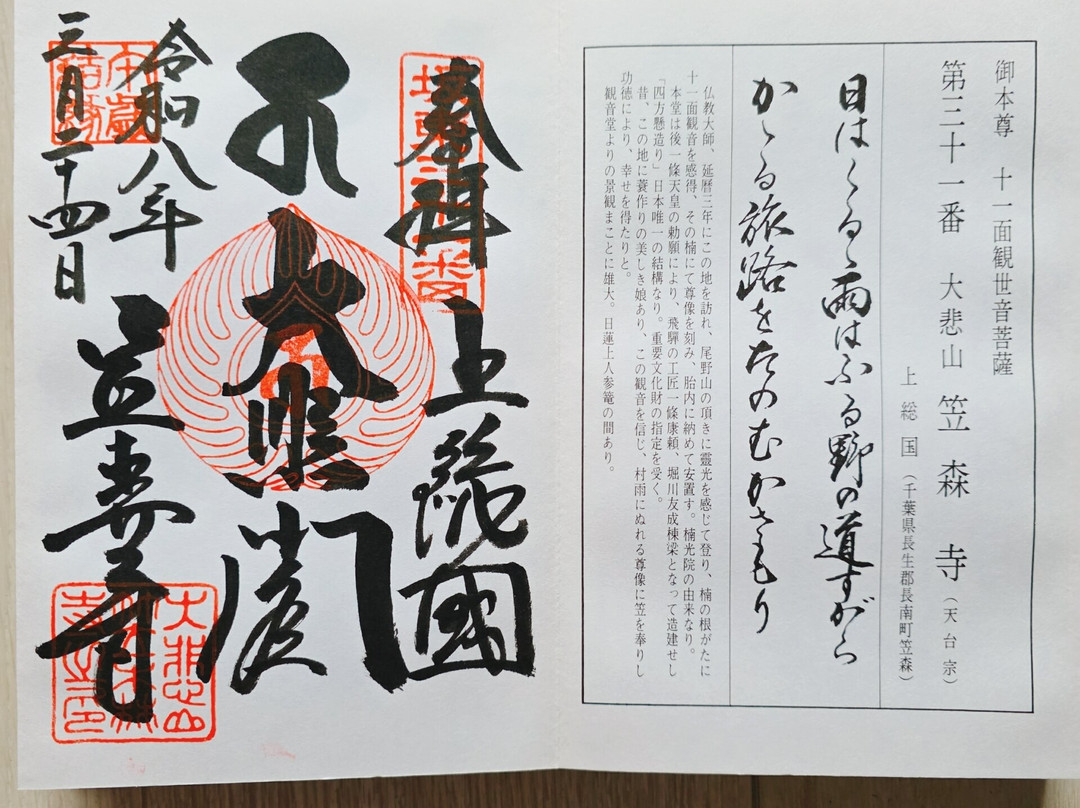 御本尊 十一面観世音菩薩
第三十一番 大悲山 笠森寺（天台宗）
上総国（千葉県長生郡長南町笠森）
日はくるゝ雨はふる野の道すがら
かゝる旅路をたのむかさもり
仏教大師、延暦三年にこの地を訪れ、尾野山の頂きに靈光を感じて登り、楠の根がたに
十一面観音を感得、その楠にて尊像を刻み、胎内に納めて安置す。楠光院の由来なり。
本堂は後一條天皇の勅願により、飛騨の工匠一條康頼、堀川友成棟梁となって造建せし
「四方懸造り」日本唯一の結構なり。重要文化財の指定を受く。
昔、この地に蓑作りの美しき娘あり、この観音を信じ、村雨にぬれる尊像に笠を奉りし
功徳により、幸せを得たりと。
観音堂よりの景観まことに雄大。日蓮上人参篭の間あり。
奉拝 上総國
大悲閣
令和八年
三月二十四日
笠森寺
大悲山